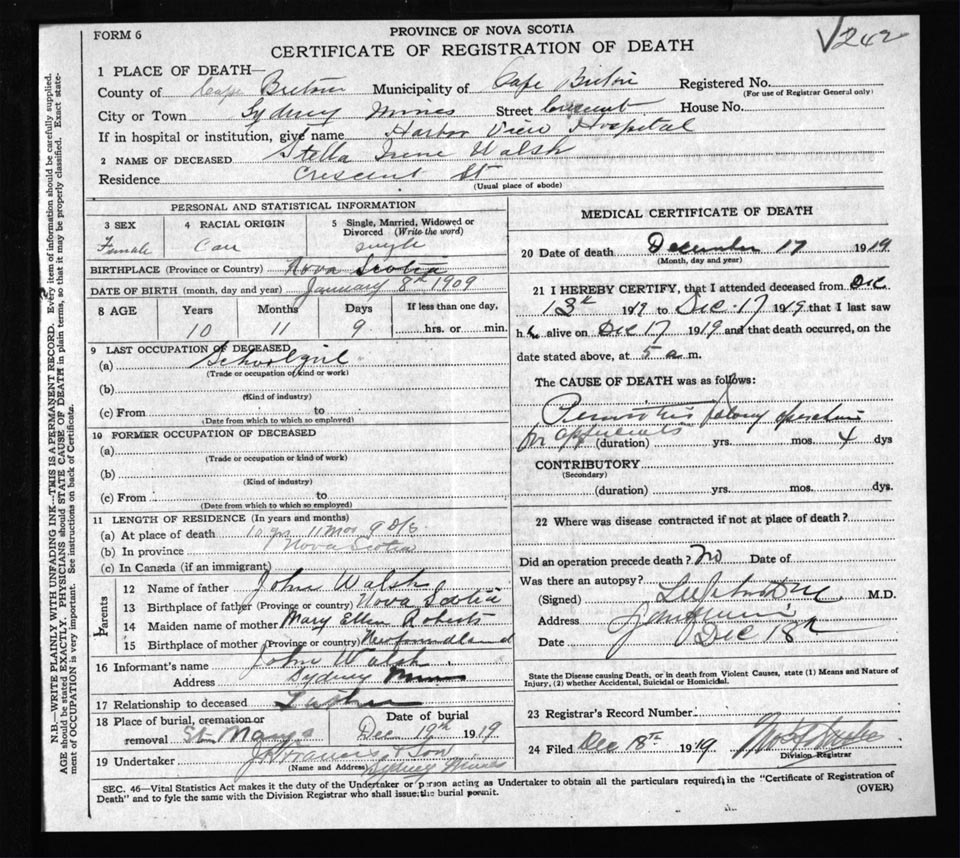 FORM 6
PROVINCE OF NOVA SCOTIA
CERTIFICATE OF REGISTRATION OF DEATH
V242
1 PLACE OF DEATH—
County of Cape Breton Municipality of Cape Breton Registered No.
(For use of Registrar General only)
City or Town Sydney Mines Street Crescent House No.
If in hospital or institution, give name Harbor View Hospital
2 NAME OF DECEASED Stella Irene Walsh
Residence Crescent St
(Usual place of abode)
PERSONAL AND STATISTICAL INFORMATION
3 SEX Female
4 RACIAL ORIGIN Cau
5 Single, Married, Widowed or Divorced (Write the word) single
BIRTHPLACE (Province or Country) Nova Scotia
DATE OF BIRTH (month, day and year) January 8th 1909
8 AGE Years 10 Months 11 Days 9 If less than one day, hrs. or min.
9 LAST OCCUPATION OF DECEASED
(a) Schoolgirl
(Trade or occupation or kind or work)
(b)
(Kind of industry)
(c) From to
(Date from which to which so employed)
10 FORMER OCCUPATION OF DECEASED
(a)
(Trade or occupation or kind of work)
(b)
(Kind of industry)
(c) From to
(Date from which to which so employed)
11 LENGTH OF RESIDENCE (In years and months)
(a) At place of death 10 yrs 11 Mos 9 D/s
(b) In province Nova Scotia
(c) In Canada (if an immigrant)
Parents
12 Name of father John Walsh
13 Birthplace of father (Province or country) Nova Scotia
14 Maiden name of mother Mary Ellen Roberts
15 Birthplace of mother (Province or country) Newfoundland
16 Informant's name John Walsh
Address Sydney Mines
17 Relationship to deceased Father
18 Place of burial, cremation or removal St. Marys Date of burial Dec 19th 1919
19 Undertaker & Son
(Name and Address) Sydney Mines
MEDICAL CERTIFICATE OF DEATH
20 Date of death December 17 1919
(Month, day and year)
21 I HEREBY CERTIFY, that I attended deceased from Dec
13th 1919 to Dec 17 1919 that I last saw
her alive on Dec 17 1919 and that death occurred, on the
date stated above, at 5 a m.
The CAUSE OF DEATH was as follows:
Peritonitis operation
for appendicitis (duration) yrs. mos. 4 dys
CONTRIBUTORY
(Secondary)
(duration) yrs. mos. dys.
22 Where was disease contracted if not at place of death?
Did an operation precede death? No Date of
Was there an autopsy?
(Signed) M.D.
Address
Date Dec 18th
State the Disease causing Death, or in death from Violent Causes, state (1) Means and Nature of
Injury, (2) whether Accidental, Suicidal or Homicidal.
23 Registrar's Record Number
24 Filed Dec 18th 1919
Division Registrar
SEC. 46—Vital Statistics Act makes it the duty of the Undertaker or person acting as Undertaker to obtain all the particulars required in the "Certificate of Registration of
Death" and to fyle the same with the Division Registrar who shall issue the burial permit.
(OVER)
N.B.—WRITE PLAINLY WITH UNFADING INK—THIS IS A PERMANENT RECORD. Every item of information should be carefully supplied.
AGE should be stated EXACTLY. PHYSICIANS should STATE CAUSE OF DEATH in plain terms, so that it may be properly classified. Exact state-
ment of OCCUPATION is very important. See instructions on back of Certificate.